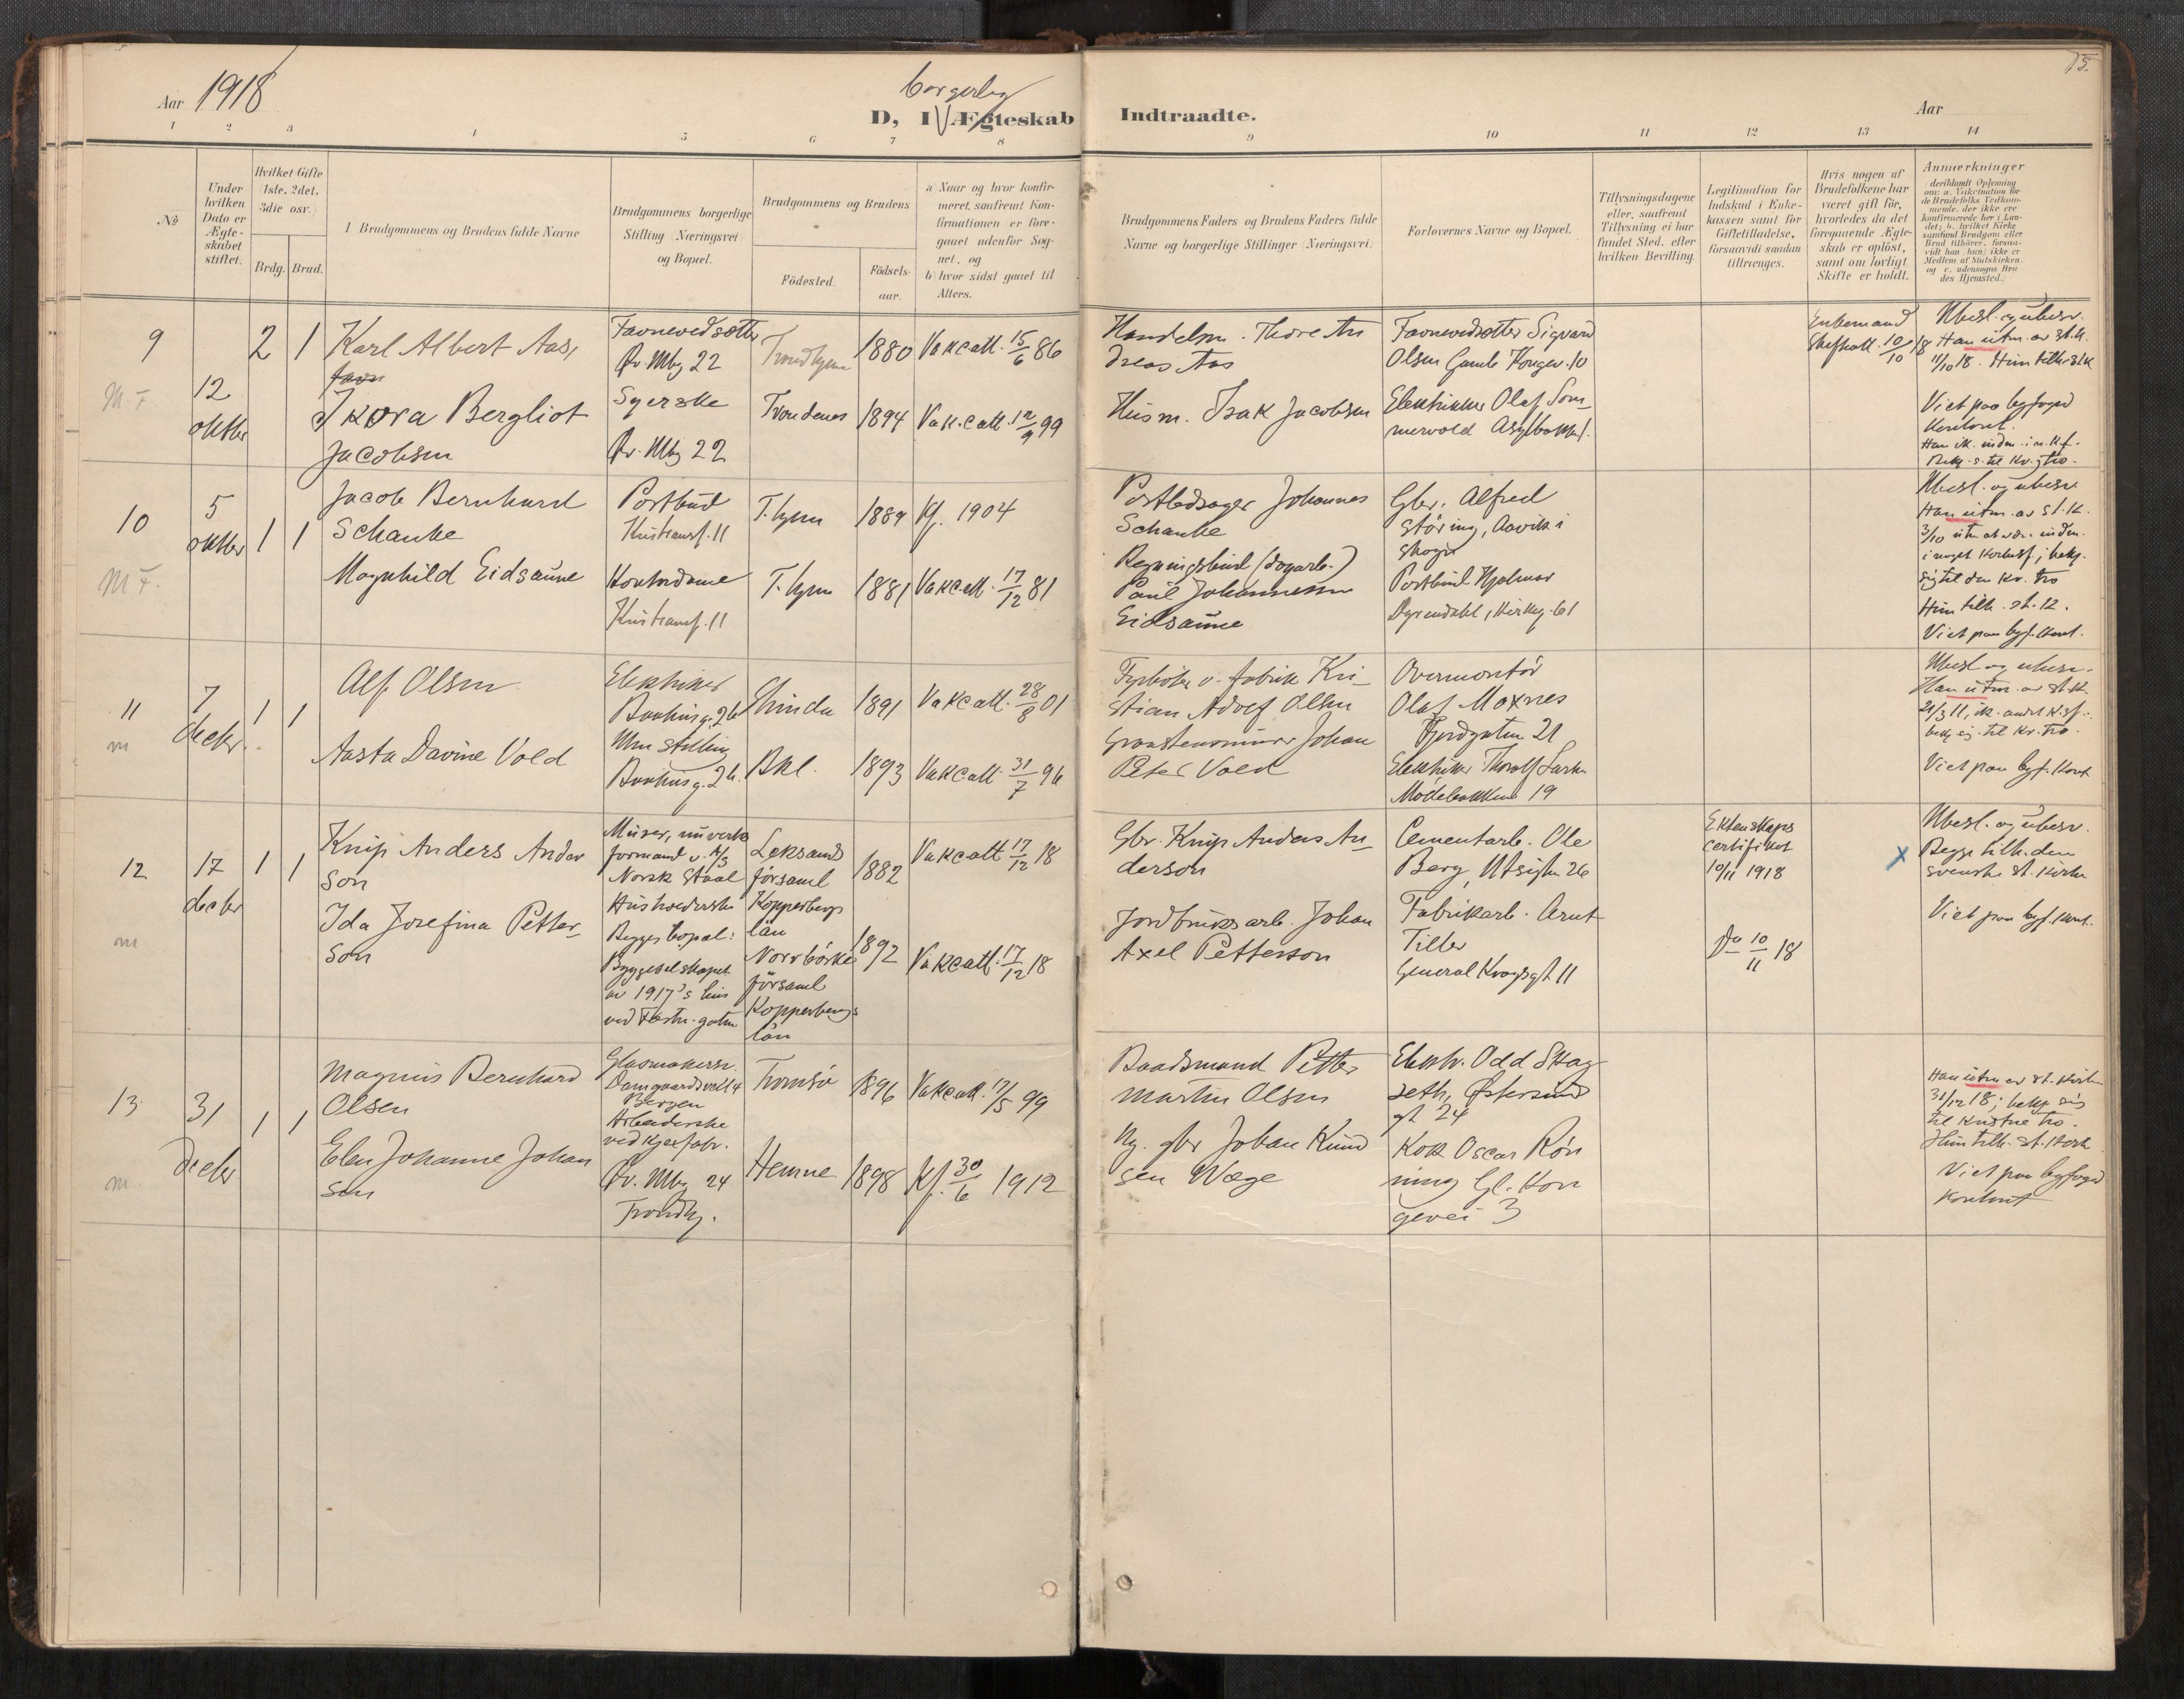 15.
Aar 1918
borgerlig
D, I Ægteskab Indtraadte.
Aar
1 2 3 4 5 6 7 8 9 10 11 12 13 14
No
Under hvilken Dato er Ægte-skabet stiftet.
Hvilket Gifte (1ste, 2det, 3die osv.)
Brdg. Brud.
1 Brudgommens og Brudens fulde Navne
Brudgommens borgerlige Stilling (Næringsvei) og Bopæl.
Brudgommens og Brudens
Födested.
Födsels-aar.
a) Naar og hvor konfir-
meret, saafremt Kon-
firmationen er fore-
gaaet udenfor Sog-
net, og
b) hvor sidst gaaet til
Alters.
Brudgommens Faders og Brudens Faders fulde
Navne og borgerlige Stillinger (Næringsvei)
Forlovernes Navne og Bopæl.
Tillysningsdagene
eller, saafremt
Tillysning ei har
fundet Sted, efter
hvilken Bevilling.
Legitimation for
Indskud i Enke-
kassen samt for
Giftetilladelse,
forsaavidt saadan
tiltrænges.
Hvis nogen af
Brudefolkene har
været gift för,
hvorledes da det
foregaaende Ægte-
skab er oplöst,
samt om lovligt
Skifte er holdt.
Anmærkninger
deriblandt Oplysning
om: a. Vakcination for
de Brudefolks Vedkom-
mende, der ikke ere
konfirmerede her i Lan-
det; b. hvilket Kirke
samfund Brudgom eller
Brud tilhörer, forsaa-
vidt han (hun) ikke er
Medlem af Statskirken.
og c. udensogns Bru
des Hjemsted.)
9
M. F.
12
oktbr
2 1
Karl Albert Aas,
Favnevedsætter
Öv. Mbg 22
Trondhjem
1880
Vakcatt. 15/6 86
Handelsm. Thore An
dreas Aas
Favnevedsætter Sigvard
Olsen Gamle Kongev. 10
Enkemand
Skifteatt. 10/10 18
Ubesl. og ubesv.
Han utm. av st.k.
11/10 18. Hun tilh. st.k
Ikora Bergliot
Jacobsen
Syerske
Öv. Mbg 22
Trondenes
1894
Vak.catt. 12/9 99
Husm. Isak Jacobsen
Elektriker Olaf Som-
mervold Asylbakken 1.
Viet paa byfoged
kontoret.
Han ik. inden. i n. k.f.
Bekj. s. til kr. tro.
10
M F.
5
oktbr
1 1
Jacob Bernhard
Schanke
Postbud
Kristiansf. 11
T.hjem
1889
Kf. 1904
Postledsager Johannes
Schanke
Gbr. Alfred
Störing, Aavik i
Skogn
Ubesl. og ubesv
Han utm. av st.k.
3/10 uten at være inden.
i noget kirkesf.; bekj.
sig til den kr. tro
Magnhild Eidsaune
Kontordame
Kristiansf. 11
T.hjem
1881
Vakcatt. 17/12 81
Regningsbud (dagarb.)
Paul Johannessen
Eidsaune
Postbud Hjalmar
Dyrendahl, Kirkeg. 61
Hun tilh. st.k.
Viet paa byf. kont.
11
m
7
decbr.
1 1
Alf Olsen
Elektriker
Baahusg. 2b
Strinda
1891
Vakcatt. 28/8 01
Fyrböter v. fabrik Kri-
stian Adolf Olsen
Overmontör
Olaf Moxnes
Fjordgaten 21
Ubesl. og ubesv.
Han utm. av st.k.
21/3 11, ik. andet k.sf.
bekj. sig til kr. tro.
Aasta Davine Vold
Uten stilling
Baahusg. 2b.
Bkl.
1893
Vakcatt. 31/7 96
Graastensminer Johan
Peter Vold
Elektriker Thorolf
Mödebakken 19
Viet paa byf. kont
12
m
17
decbr
1 1
Knip Anders Ander
son
Murer, nu verks
formand v. A/S
Norsk Staal
Leksands
församl
Kopperbergs
län
1882
Vakcatt 17/12 18
Gbr. Knip Anders An-
derson
Cementarb. Ole
Berg, Utsigten 26
Ektenskaps
certifikat
10/11 1918
X
Ubesl. og ubesv.
Begge tilh. den
svenske st. kirke
Ida Josefina Petter-
son
Husholderske
Begges bopæl:
Byggeselskapet
av 1917's hus
ved Festn. gaten
Norrbärke
församl
Kopperbergs
län
1892
Vakcatt. 17/12 18
Jordbruksarb. Johan
Axel Petterson
Fabrikarb. Arnt
Tiller
General Kroghsgt 11
Do 10/11 18
Viet paa byf. kont.
13
m.
31
decbr
1 1
Magnus Bernhard
Olsen
Glasmakersv.
Damgaardsveil 4
Bergen
Tromsö
1896
Vakcatt. 17/5 99
Baadsmand Petter
Martin Olsen
Elektr. Odd Skag
seth, Østersund
gt 24
Han utm av st. kirke
31/12 18; bekj. sig
til kristne tro.
Hun tilh. st. kirk
Elen Johanne Johan
sen
Arbeiderske
ved kjexfabr.
Öv. Mbg 24
Trondhj.
Hemne
1898
Kf. 30/6 1912
Ng. gbr Johan Knud
sen Wæge
Kok Oscar Rön
ning Gl. Kon
gevei 3
Viet paa byfoged
kontoret